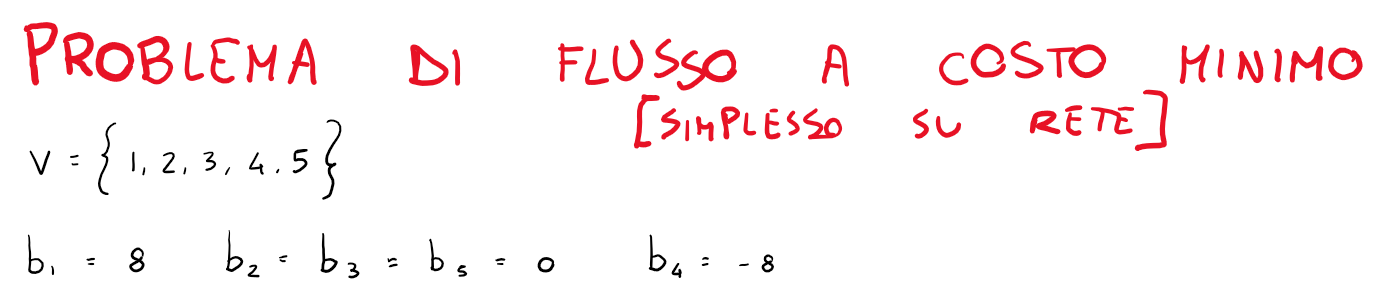 PROBLEMA DI FLUSSO A COSTO MINIMO
[SIMPLESSO SU RETE]
V = { 1, 2, 3, 4. 5 }
b₁ = 8 b₂ = b₃ = b₅ = 0 b₄ = -8